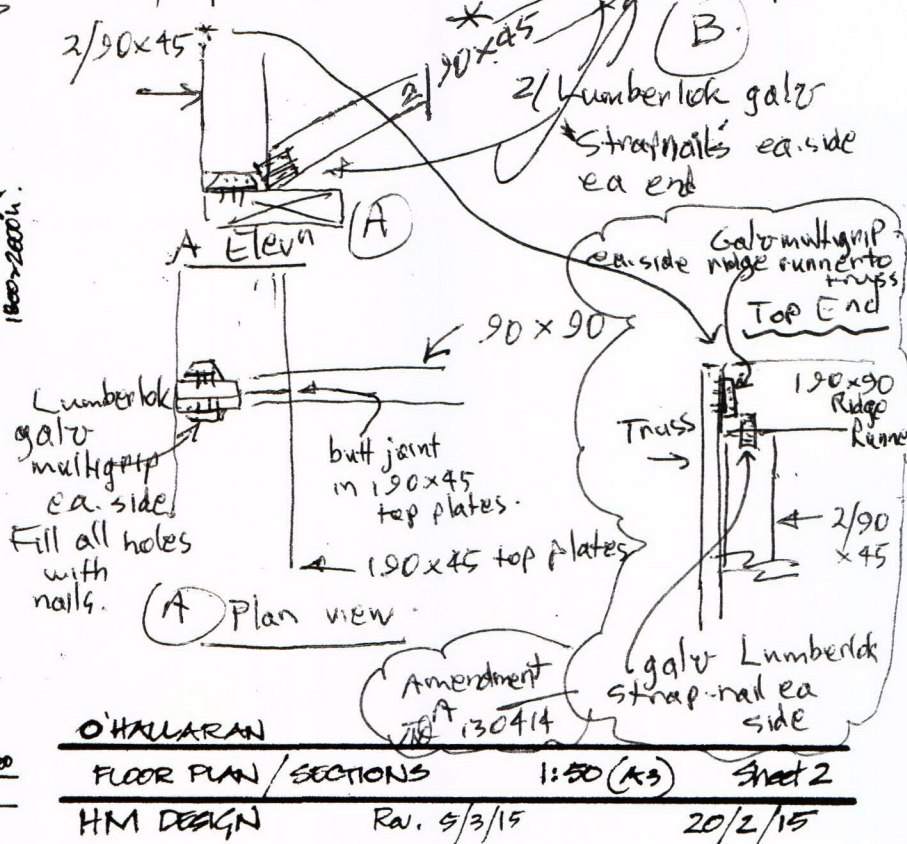 2/90x45
2/90x45
B
2/ Lumberlok galv
Strapnails ea. side
ea end
1800>2600h.
A Elevn
A
Galv multigrip
ea. side ridge runner to
truss
Top End
90 x 90
190x90
Ridge
Runner
Truss
2/90
x45
Lumberlok
galv
multigrip
ea. side
Fill all holes
with
nails.
butt joint
in 190x45
top plates.
190x45 top plates
A Plan view
galv Lumberlok
strap-nail ea
side
Amendment
A
130414
O'HALLARAN
FLOOR PLAN / SECTIONS 1:50 (A3) Sheet 2
HM DESIGN Rev. 5/3/15 20/2/15